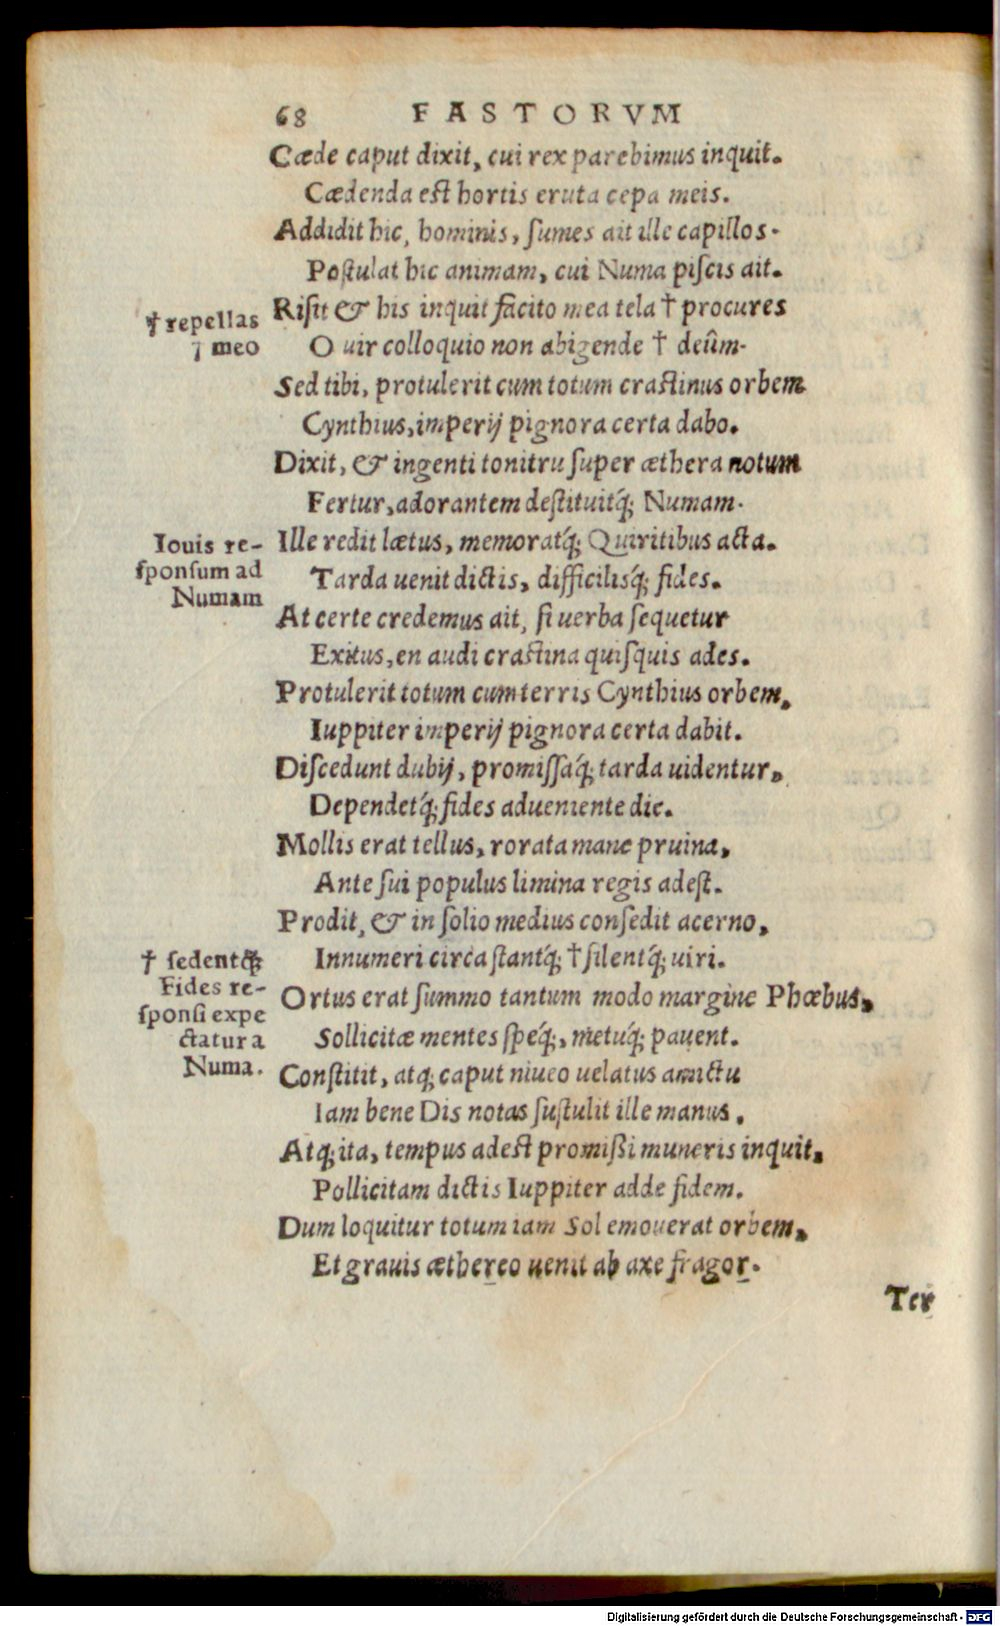 68 FASTORVM
Cæde caput dixit, cui rex parebimus inquit.
Cædenda est hortis eruta cepa meis.
Addidit hic, hominis, ſumes ait ille capillos.
Poſtulat hic animam, cui Numa piſcis ait.
Riſit & his inquit facito mea tela † procures
† repellas
O uir colloquio non abigende † deûm.
† meo
Sed tibi, protulerit cum totum craſtinus orbem
Cynthius, imperij pignora certa dabo.
Dixit, & ingenti tonitru ſuper æthera notum
Fertur, adorantem deſtituitq́; Numam.
Ille redit lætus, memoratq́; Quiritibus acta.
Iouis re-
ſponſum ad
Numam
Tarda uenit dictis, difficilisq́; fides.
At certe credemus ait, ſi uerba ſequetur
Exitus, en audi craſtina quiſquis ades.
Protulerit totum cum terris Cynthius orbem,
Iuppiter imperij pignora certa dabit.
Diſcedunt dubij, promiſſaq́; tarda uidentur,
Dependetq́; fides adueniente die.
Mollis erat tellus, rorata mane pruina,
Ante ſui populus limina regis adeſt.
Prodit, & in ſolio medius conſedit acerno,
Innumeri circa ſtantq́; † ſilentq́; uiri.
† ſedentq́;
Fides re-
ſponſi expe
ctatur a
Numa.
Ortus erat ſummo tantum modo margine Phœbus,
Sollicitæ mentes ſpeq́;, metuq́; pauent.
Conſtitit, atq; caput niueo uelatus amictu
Iam bene Dis notas ſuſtulit ille manus.
Atq; ita, tempus adeſt promißi muneris inquit,
Pollicitam dictis Iuppiter adde fidem.
Dum loquitur totum iam Sol emouerat orbem,
Et grauis æthereo uenit ab axe fragor.
Ter
Digitalisierung gefördert durch die Deutsche Forschungsgemeinschaft - DFG